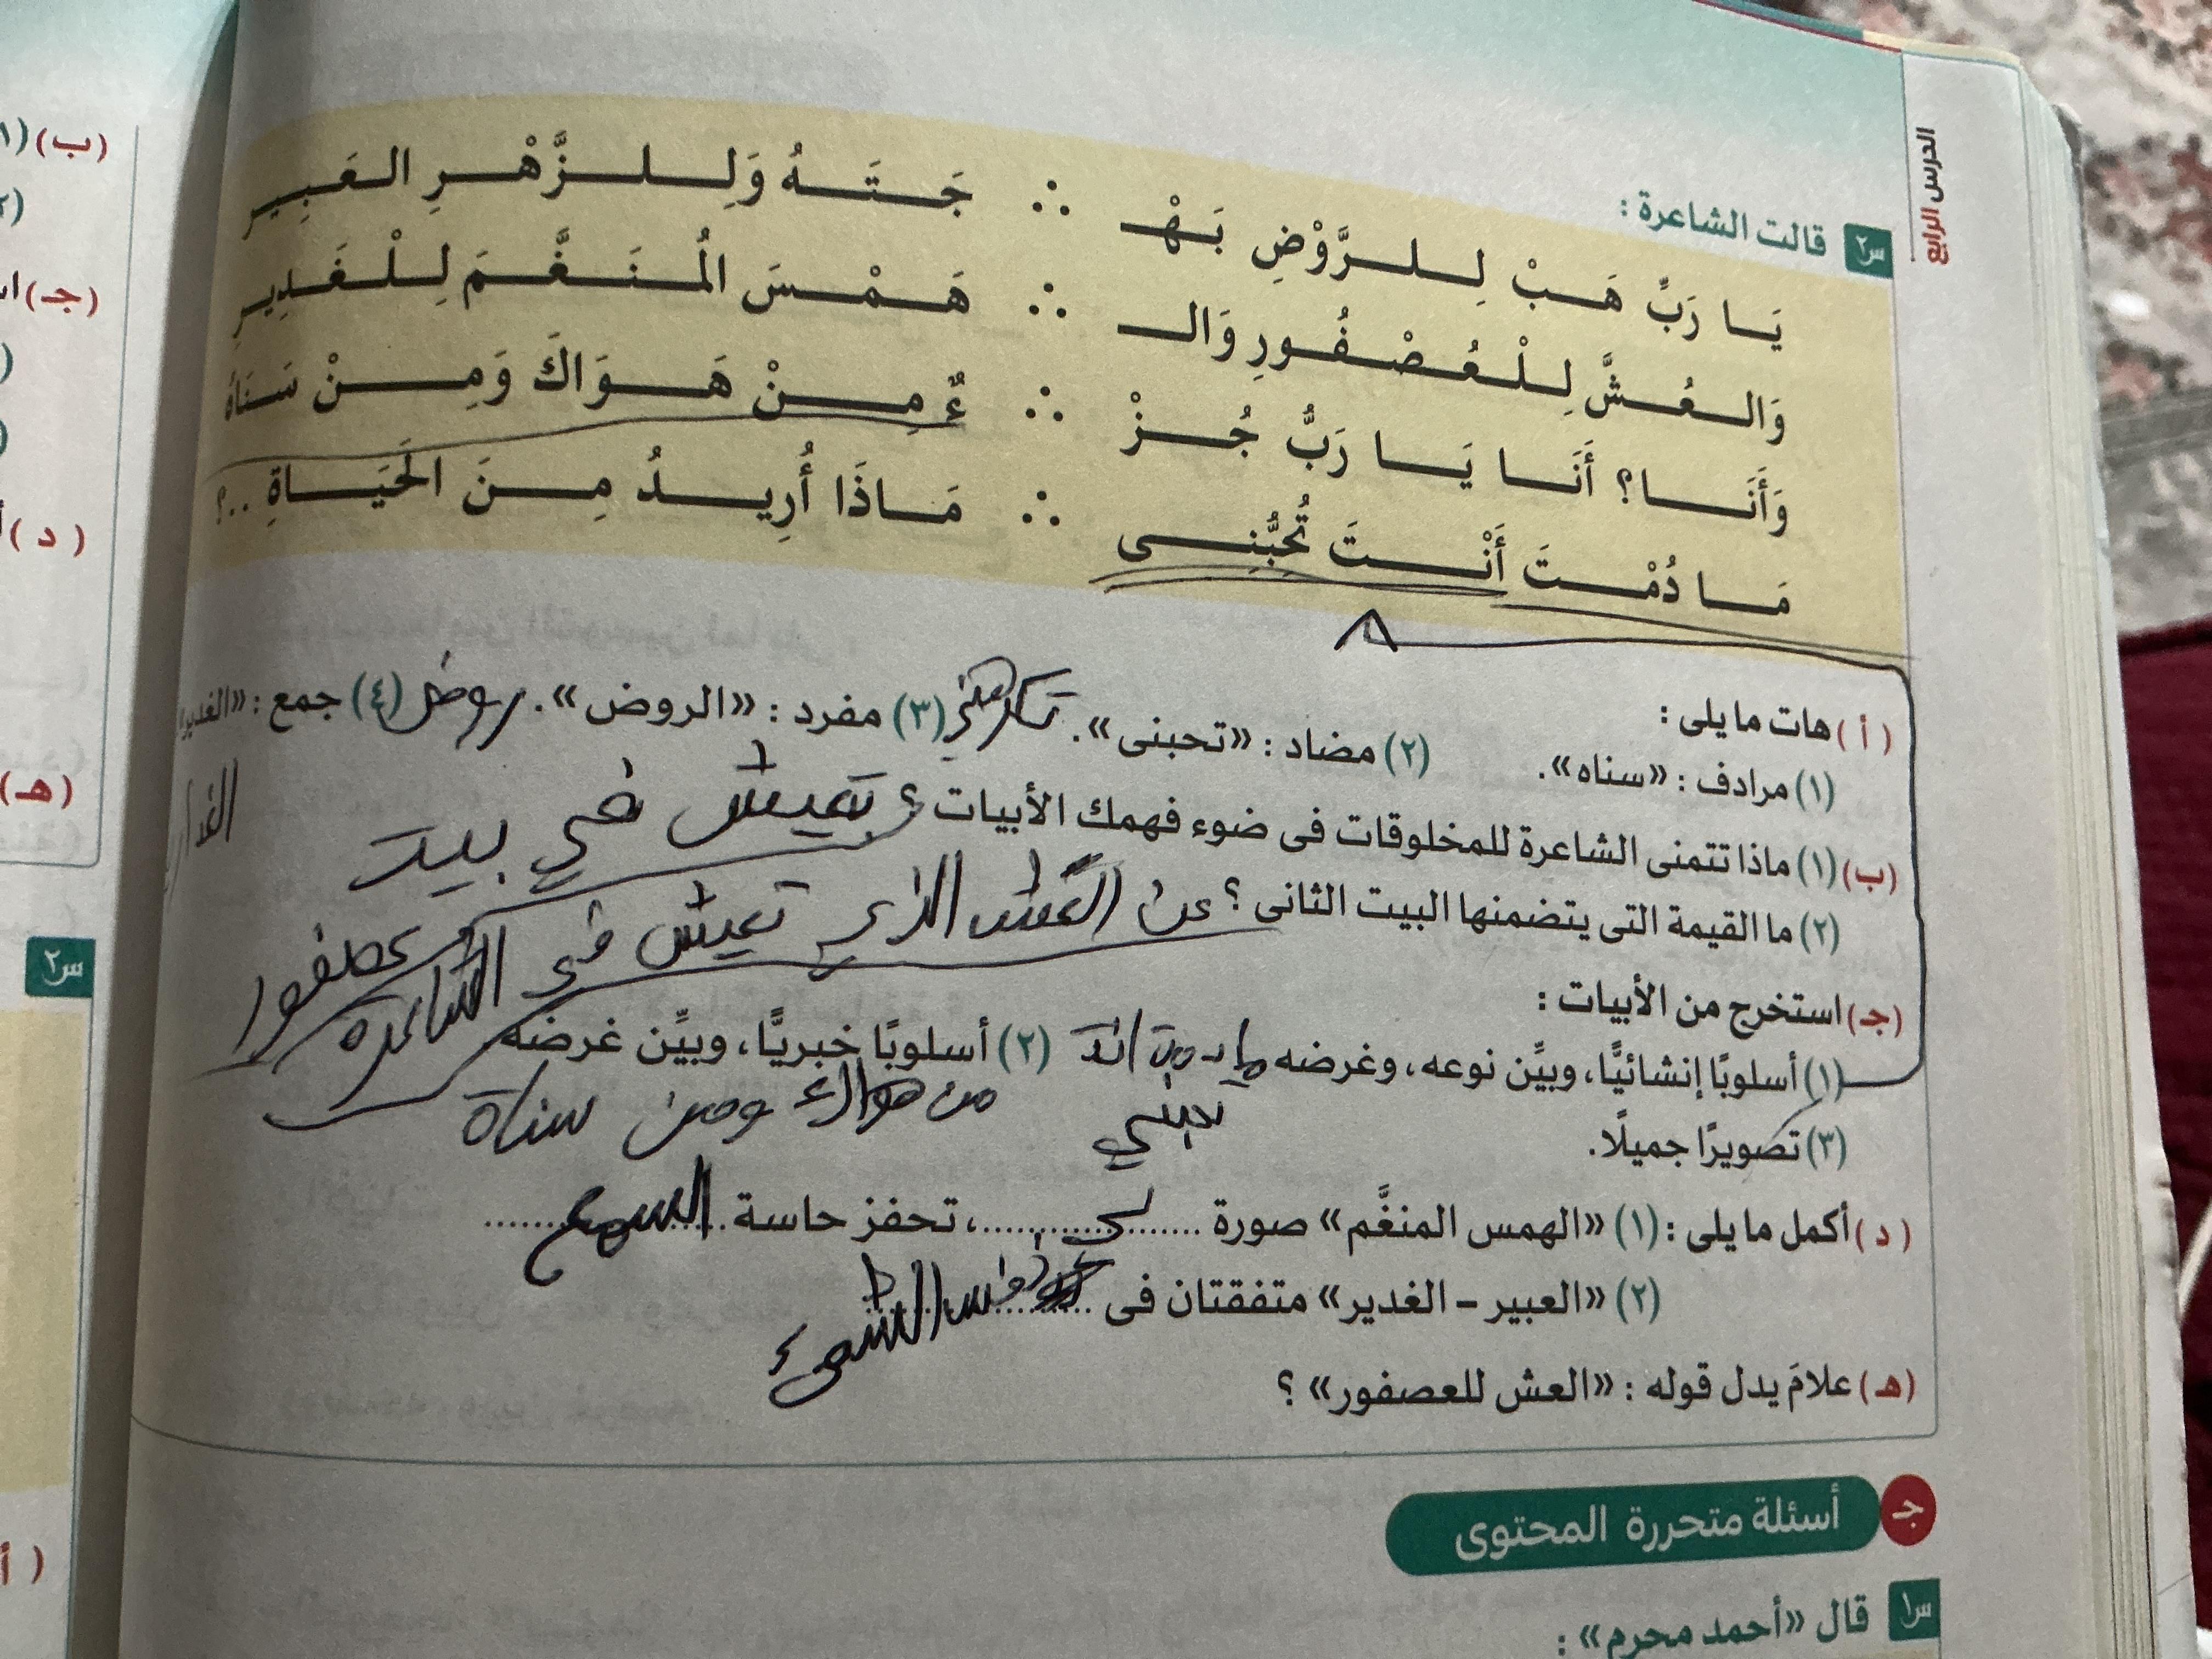 الدرس الرابع
س٢ قالت الشاعرة :
يَا رَبِّ هَبْ لِلرَّوْضِ بَهْ ∴ جَتَهُ وَلِلزَّهْرِ العَبِير
وَالعُشَّ لِلْعُصْفُورِ وَالـ ∴ هَمْسَ المُنَغَّمَ لِلْغَدِيرِ
وَأَنَا؟ أَنَا يَا رَبُّ جُزْ ∴ ءٌ مِنْ هَوَاكَ وَمِنْ سَنَاهْ
مَا دُمْتَ أَنْتَ تُحِبُّنِى ∴ مَاذَا أُرِيدُ مِنَ الْحَيَاةِ ..؟
(أ) هات ما يلى :
(١) مرادف : «سناه». (٢) مضاد : «تحبنى». تكرهني (٣) مفرد : «الروض». روض (٤) جمع : «الغدير
(ب) (١) ماذا تتمنى الشاعرة للمخلوقات فى ضوء فهمك الأبيات ؟ تعيش في بيت
عصفور
(٢) ما القيمة التى يتضمنها البيت الثانى ؟ عن العش الذي تعيش في
الشاعرة
(جـ) استخرج من الأبيات :
(١) أسلوبًا إنشائيًّا، وبيِّن نوعه، وغرضه ما دمت انت (٢) أسلوبًا خبريًّا، وبيِّن غرضه
تحبني من هواك ومن سناة
(٣) تصويرًا جميلًا.
(د) أكمل ما يلى : (١) «الهمس المنغَّم» صورة ....................، تحفز حاسة السمع
(٢) «العبير – الغدير» متفقتان فى ....................
(هـ) علامَ يدل قوله : «العش للعصفور» ؟
جـ أسئلة متحررة المحتوى
س١ قال «أحمد محرم» :
(ب) (١
(جـ) ا
(د) أ
(هـ)
س٢
(أ